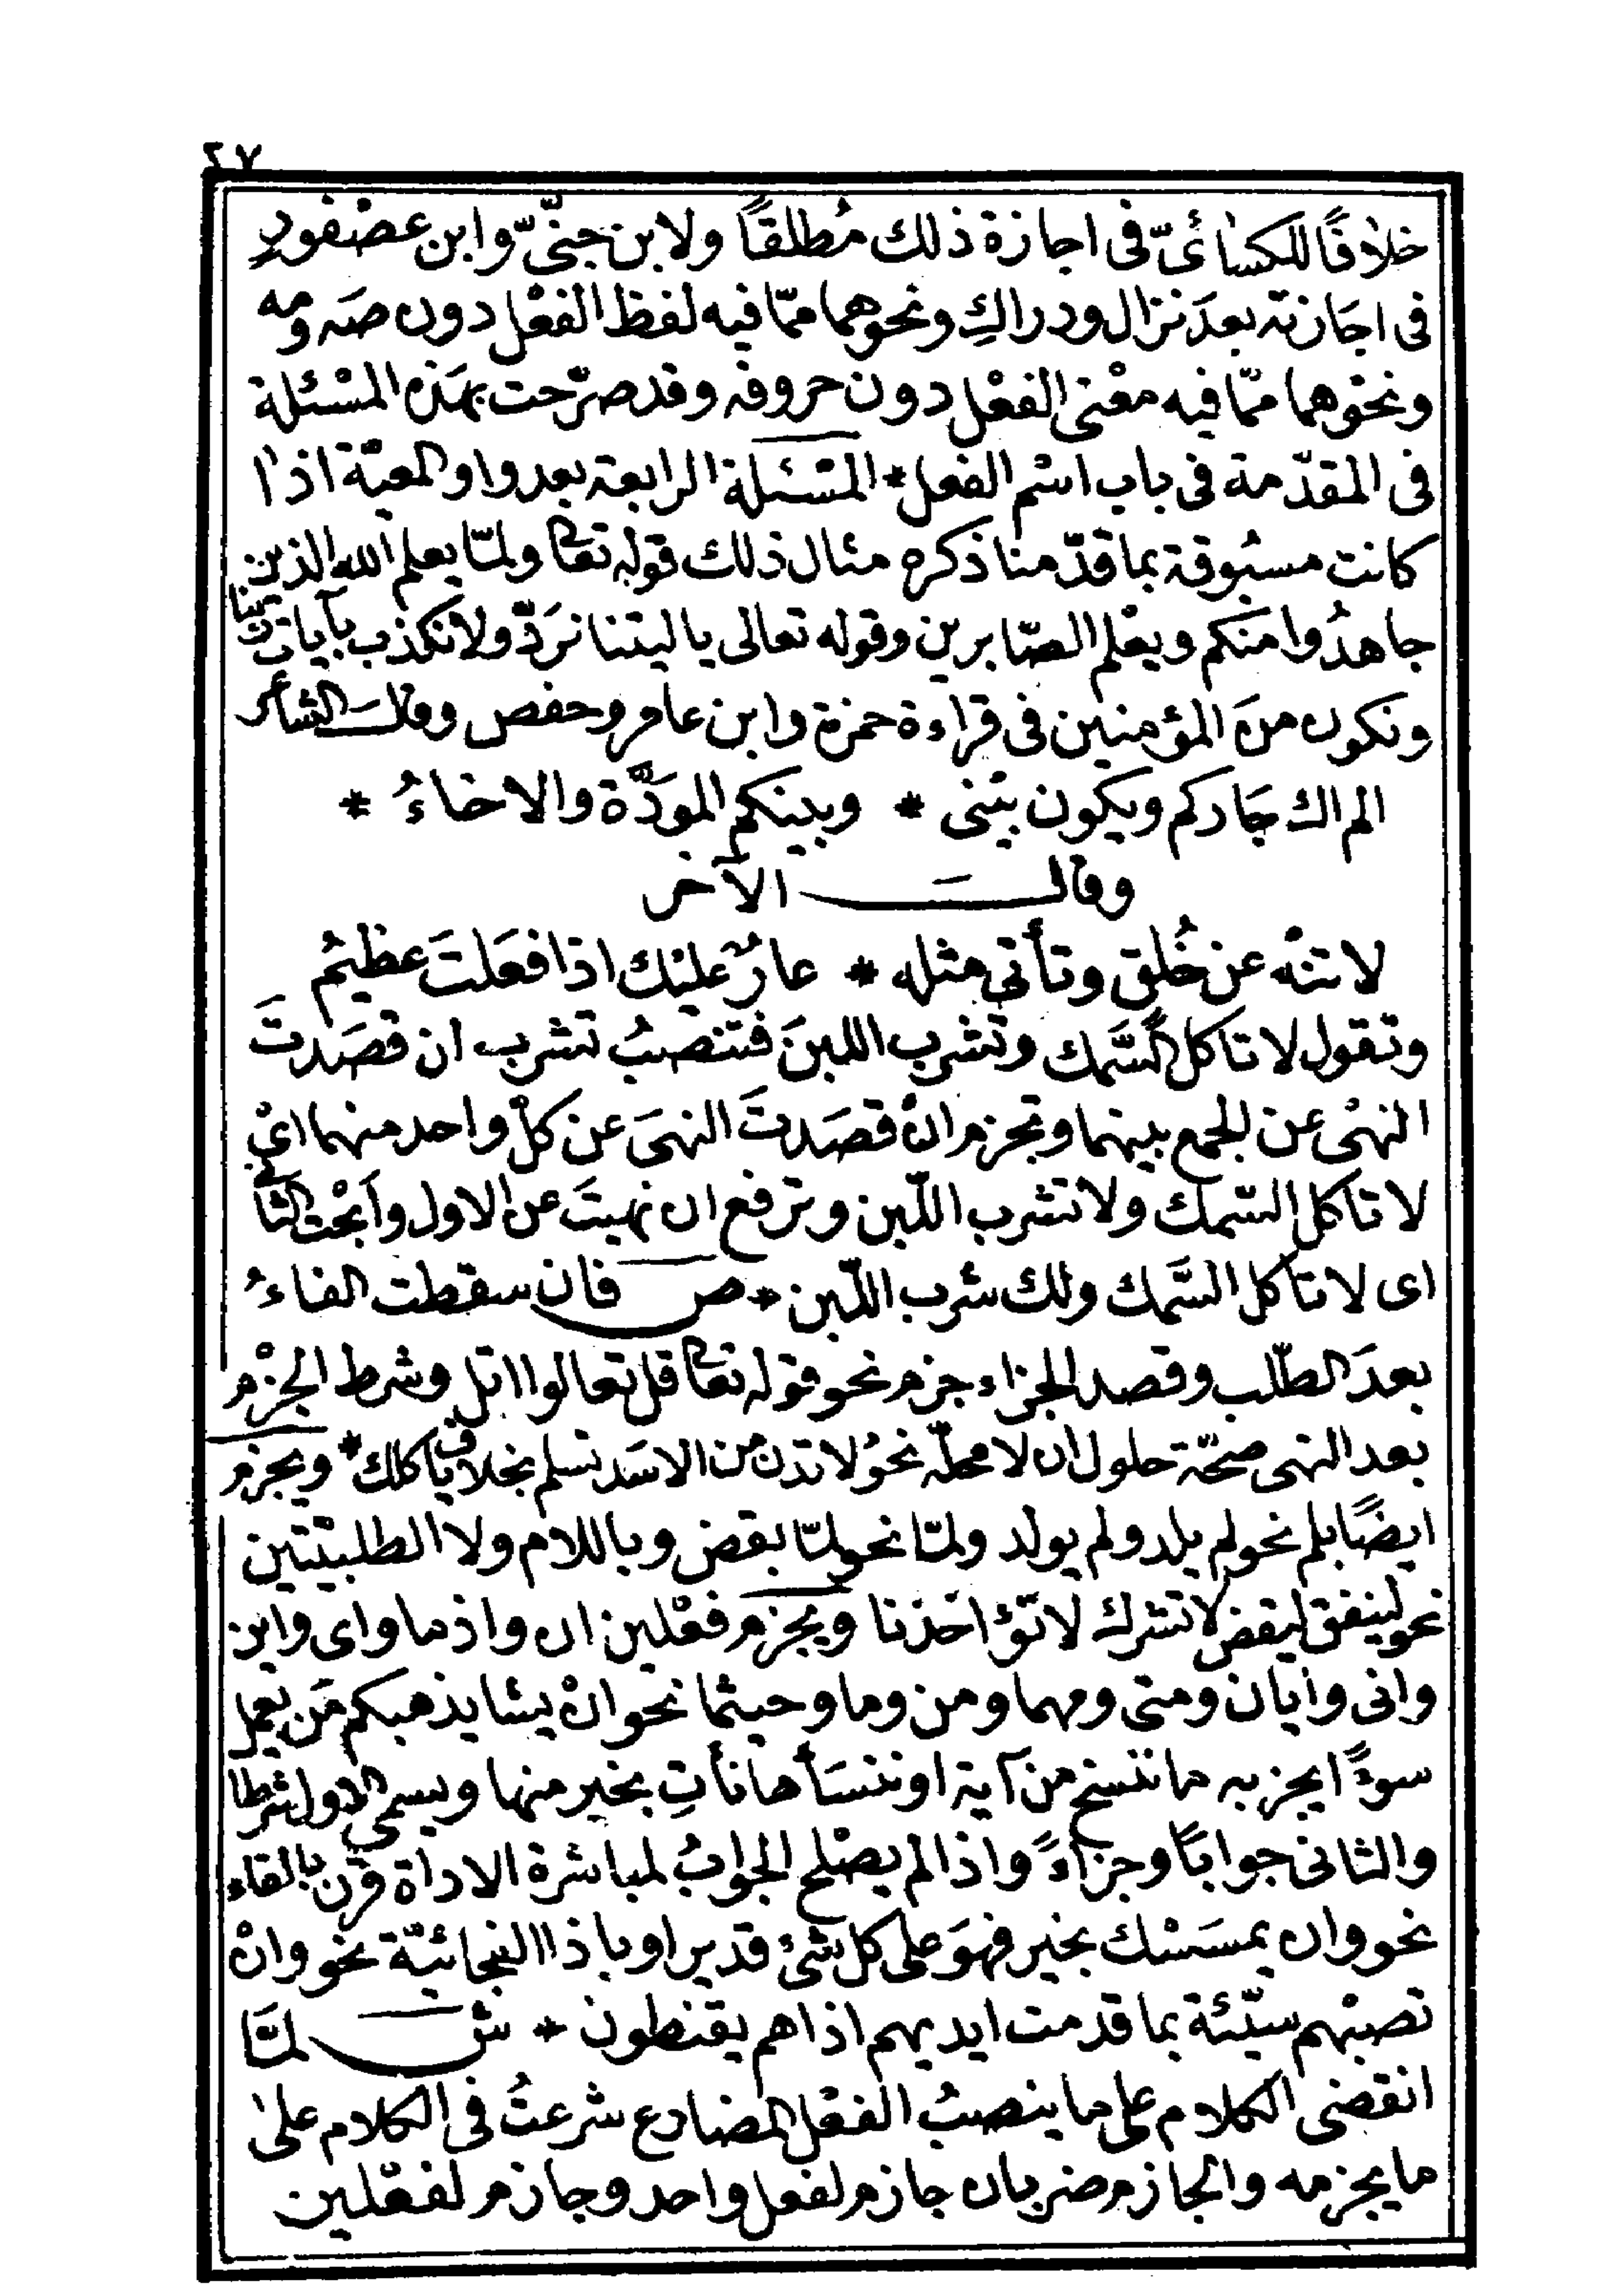 ٢٧
خلافًا للكسائىّ فى اجازة ذلك مُطلقًا ولابن جنّىّ وابن عصْفورٍ
فى اجَازته بعدَ نزال ودراكِ ونحوهما ممّا فيه لفظ الفعْل دون صَه ومه
ونحوهما ممّا فيه معْنى الفعْل دون حروفه وقد صرّحت بهذه المسْئلة
فى المقدّمة فى باب اسْم الفعل * المسْئلة الرابعة بعد واو المعيّة اذا
كانت مسبُوقة بما قدّمنا ذكره مثال ذلك قوله تعا ولمّا يعلم الله الذين
جاهدُوا منكم ويعْلم الصّابرين وقوله تعالى يا ليتنا نردّ ولا نكذب بآيات ربّنا
ونكون منَ المؤمنين فى قراءة حمزة وابن عامر وحفص وقالَ الشاعر
الم اك جَاركم ويكون بيْنى * وبينكم المودّة والاخاءُ *
وقالَ الآخر
لا تنْه عن خُلق وتأتى مثله * عارٌ عليْك اذا فعَلتَ عظيمُ
وتقول لا تاكل السَّمك وتشرب اللبنَ فتنصبُ تشرب ان قصَدتَ
النهْى عن الجمع بينهما وتجزم انْ قصَدتَ النهىَ عن كلّ واحد منهما اىْ
لا تاكل السّمك ولا تشرب اللّبن وترفع ان نهيتَ عن الاول وأبحْت الثانى
اى لا تاكل السَّمك ولك شرب اللّبن * ص فان سقطت الفاءُ
بعدَ الطّلب وقصد الجزاء جزم نحو قوله تعا قل تعالوا اتل وشرط الجزْم
بعد النهى صحّة حلول ان لا محلّه نحوُ لا تدن من الاسَد تسلم بخلاف ياكلك * ويجزم
ايضًا بلم نحو لم يلد ولم يولد ولمّا نحو لمّا يقض وباللام ولا الطلبيّتين
نحو لينفق ليقض لا تشرك لا تؤاخذنا ويجزم فعْلين ان واذما واى واين
وانى وايان ومتى ومهما ومن وما وحيثما نحو انْ يشا يذهبكم مَن يعمل
سوءًا يجز به ما ننسخ من آية او ننسَأها نأتِ بخير منها ويسمى الاول شرطا
والثانى جوابًا وجزاءً واذا لم يصْلح الجوابُ لمباشرة الاداة قرن بالفاء
نحو وان يمسَسْك بخير فهوَ على كل شئ قدير او باذا الفجائيّة نحو وانْ
تصبْهم سيّئة بما قدمت ايديهم اذا هم يقنطون * ش لمَّا
انقضى الكلام على ما ينصبُ الفعْل المضارع شرعتُ فى الكلام على
ما يجزمه والجازم ضربان جازم لفعل واحد وجازم لفعْلين